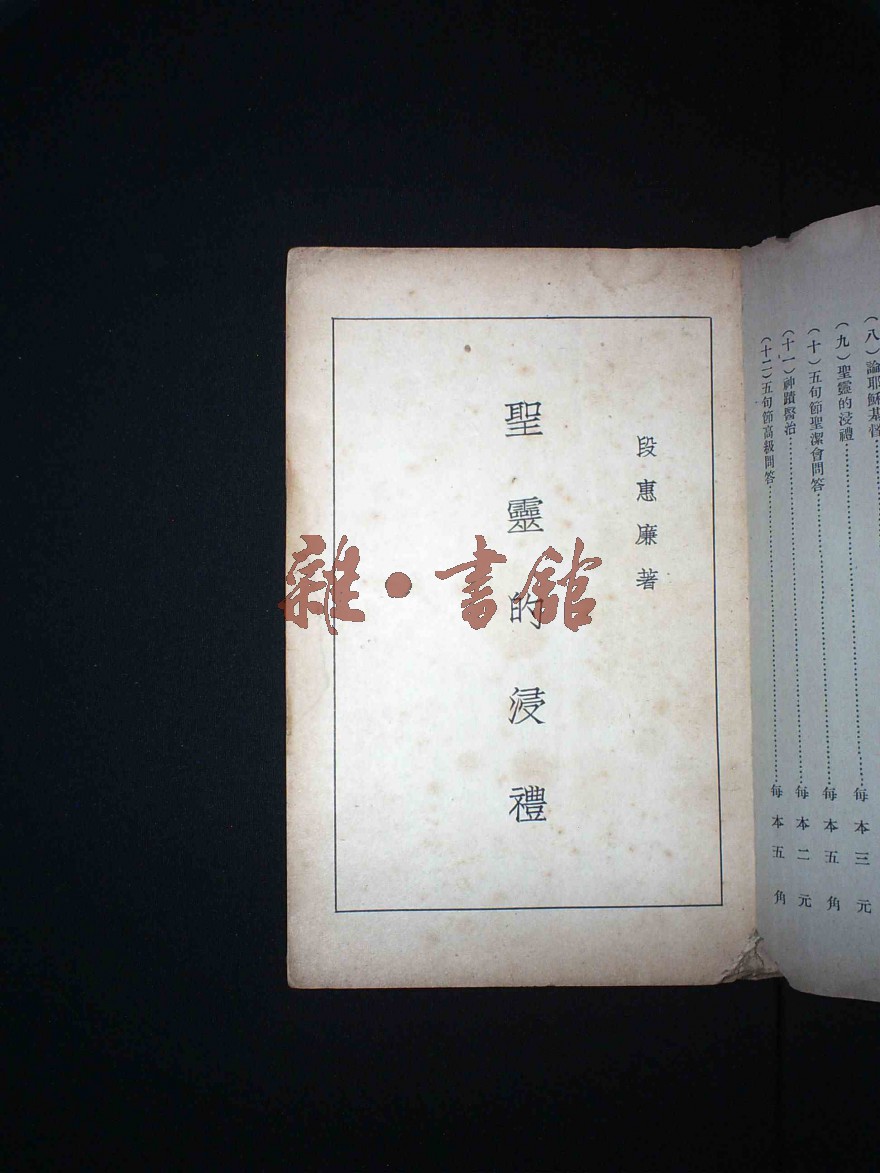 （八）論耶穌基督
（九）聖靈的浸禮………每本三元
（十）五旬節聖潔會問答………每本五角
（十一）神蹟醫治………每本二元
（十二）五旬節高級問答………每本五角
段惠廉著
聖靈的浸禮
雜·書館